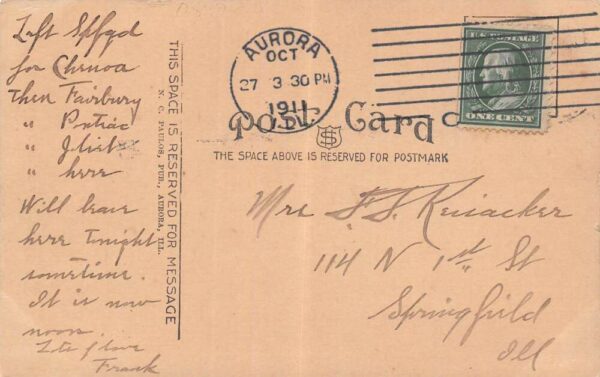 Left Spfgd
for Chenoa
then Fairbury
" Pontiac
" Joliet
" here
Will leave
here tonight
sometime.
It is now
noon.
Lots of love
Frank
THIS SPACE IS RESERVED FOR MESSAGE
N. C. PAULOS, PUB., AURORA, ILL.
AURORA
OCT
27 3 30 PM
1911
ILL.
U.S. POSTAGE
ONE CENT
Post Card
THE SPACE ABOVE IS RESERVED FOR POSTMARK
Mrs F. S.
114 N 1st St
Springfield
Ill